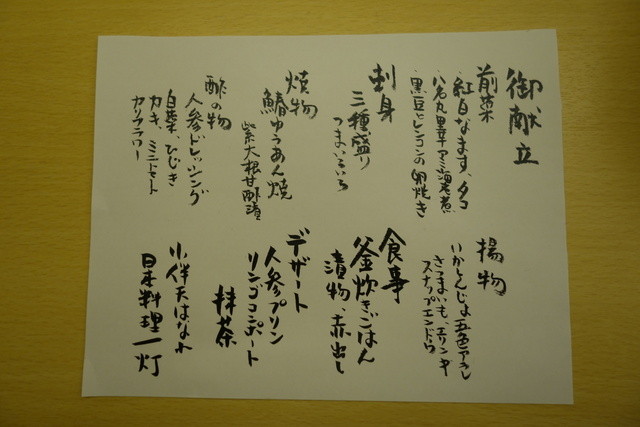 御献立
前菜
・紅白なます、タコ
・八名丸里芋と海老煮
・黒豆とレンコンの卵焼き
刺身
三種盛り
つまいろいろ
焼物
鰆ゆうあん焼
紫大根甘酢漬
酢の物
人参ドレッシング
白菜、ひじき
カキ、ミニトマト
カリフラワー
揚物
いかしんじょ五色アラレ
さつまいも、エリンギ
スナップエンドウ
食事
釜炊きごはん
漬物、赤出し
デザート
人参プリン
リンゴコンポート
抹茶
小伴天はなれ
日本料理一灯